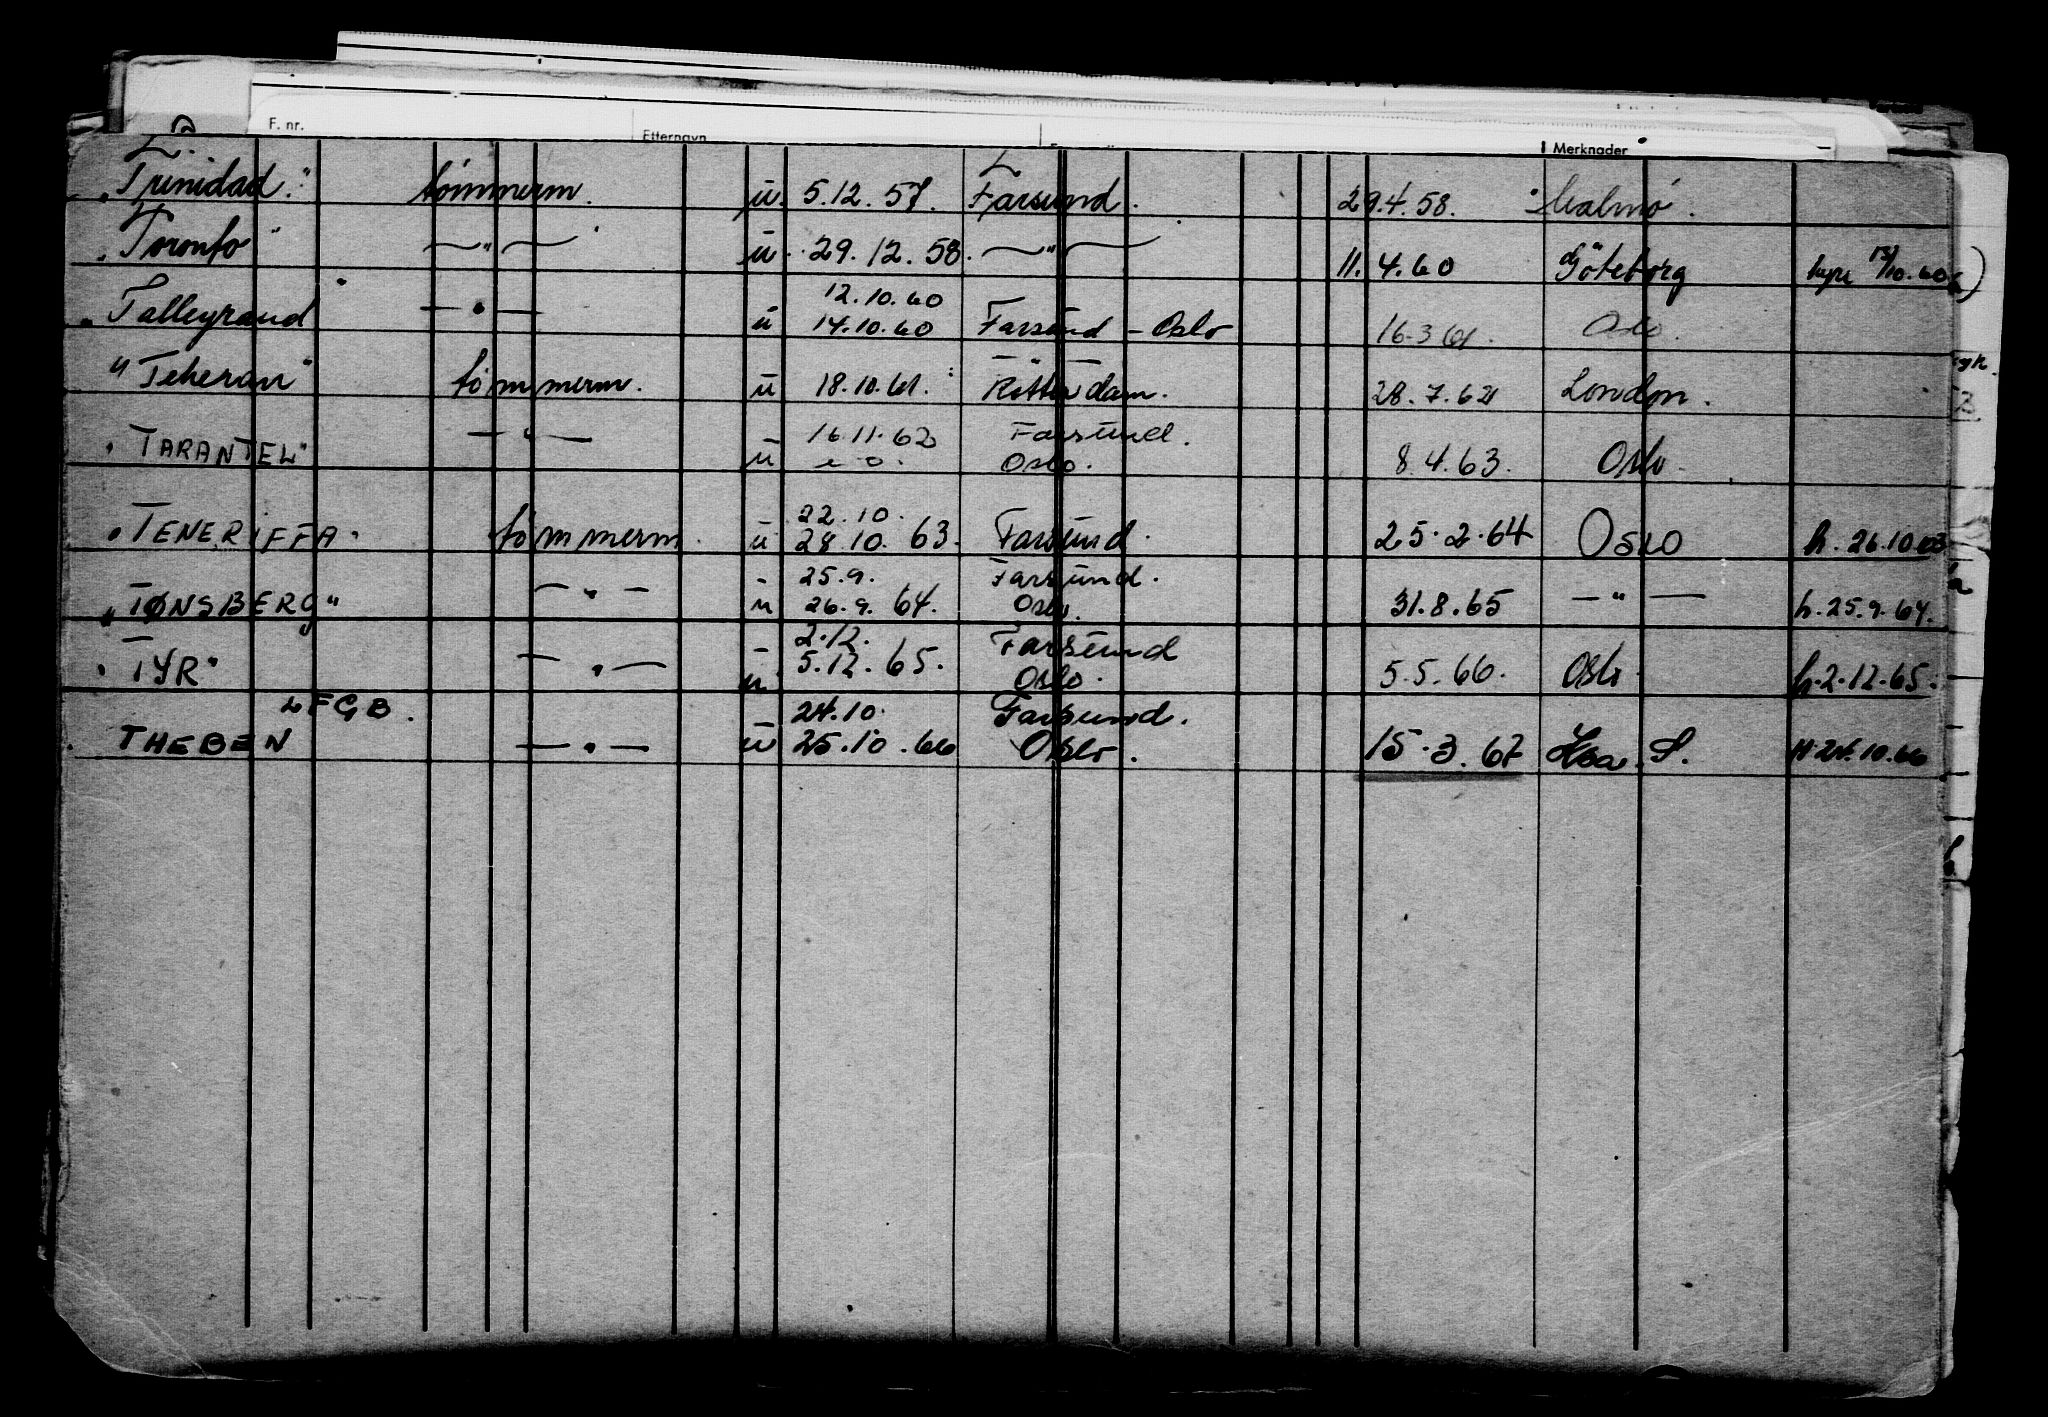 F. nr. Etternavn Merknader
"Trinidad." tömmerm. ü. 5.12.57. Farsund. 29.4.58. Malmö.
"Toronto" —"— ü. 29.12.58. —"— 11.4.60 Göteborg hyre 13/10.60
12.10.60
"Talleyrand" —"— ü 14.10.60 Farsund - Oslo 16.3.61. Oslo.
"Teheran" tömmerm. ü 18.10.61. Rotterdam. 28.7.62 London.
16.11.62 Farsund.
"TARANTEL" —"— ü Oslo. 8.4.63. Oslo.
22.10.
"TENERIFFA" tömmerm. ü 28.10.63. Farsund. 25.2.64 OSLO h. 26.10.63
25.9. Farsund.
"TØNSBERG" —"— ü 26.9.64. Oslo. 31.8.65 —"— h.25.9.64.
2.12. Farsund
"TYR" —"— ü 5.12.65. Oslo. 5.5.66. Oslo h.2.12.65.
LFGB. 24.10. Farsund.
THEBEN —"— ü 25.10.66 Oslo. 15.3.67 H.24.10.66